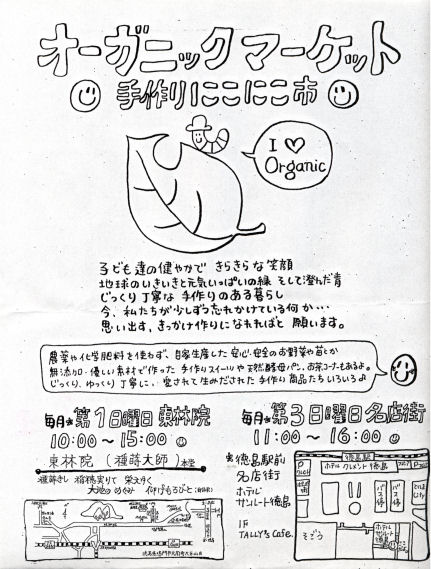 オーガニックマーケット
手作りにこにこ市
I ♡
Organic
子ども達の健やかで きらきらな笑顔
地球のいきいきと元気いっぱいの緑 そして澄んだ青
じっくり丁寧な 手作りのある暮らし
今、私たちが少しずつ忘れかけている何か…
思い出す、きっかけ作りになれればと 願います。
農薬や化学肥料を使わず、自家生産した安心・安全のお野菜や苗とか
無添加・優しい素材で作った 手作りスイーツや天然酵母パン、お茶コーナーもあるよ。
じっくり、ゆっくり丁寧に、愛されて生みだされた 手作り商品たちいろいろ♪
毎月 第1日曜日 東林院
10:00〜15:00
東林院 (種蒔大師) 本堂
種蒔きし 稲穂実りて 栄え行く
大地のめぐみ 仰げもろびと
毎月 第3日曜日 名店街
11:00〜16:00
徳島駅前
名店街
ホテル
サンルート徳島
1F
TALLY's Cafe.
徳島駅
ホテルクレメント徳島
バス停
バス停
そごう
ホテルサンルート徳島